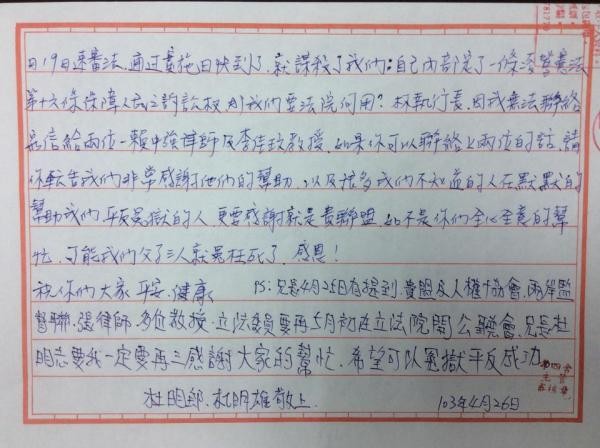 日19日速審法,通过實施日快到了,就謀殺了我們;自己內部院了一條
第十六條保障人民之訴訟权,則我們要法院何用?权執行長,因我無法聯絡
是信給兩位—賴中強律師及李佳玟教授,如果你可以聯絡上兩位的話,請
你転告我們非常感謝他們的幫助,以及很多我們不知道的人在默默的
幫助我們,平反冤獄的人,更要感謝就是貴聯盟,如不是你們全心全意的幫
忙,可能我們父子三人就冤枉死了,感恩!
祝你們大家平安.健康 PS:兄長4月25日有提到,貴盟及人權協會,兩岸監
督聯,張律師.多位教授.立法委員要再5月初在立法院開公聽會,兄長杜
明志要我一定要再三感謝大家的幫忙,希望可以冤獄平反成功
杜明郎.杜明雄敬上 103年4月26日